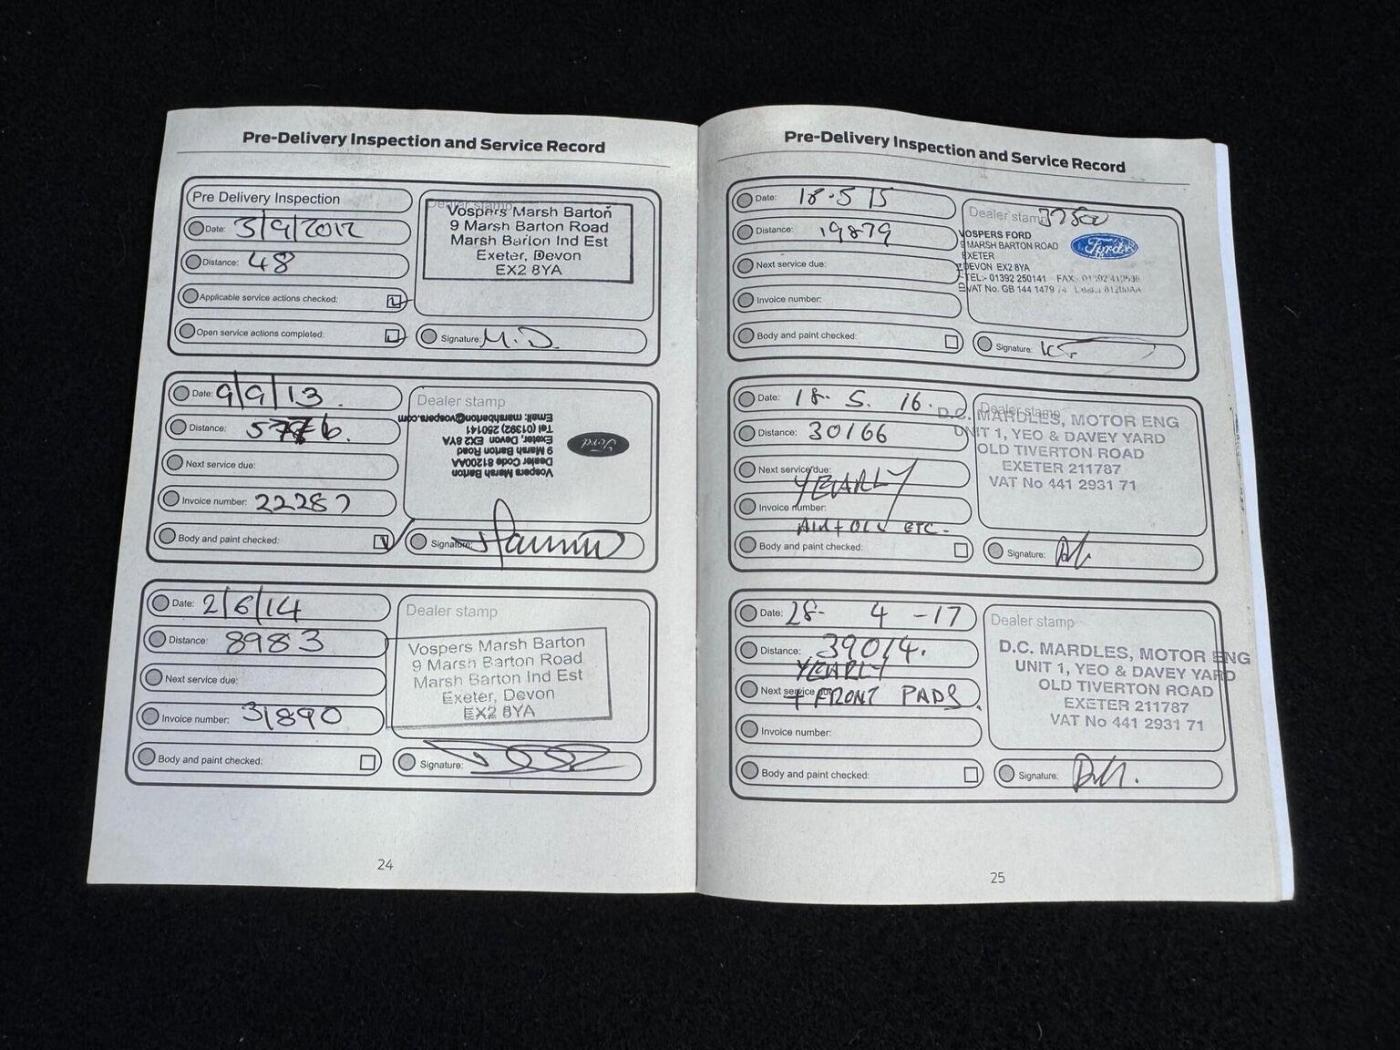 Pre-Delivery Inspection and Service Record
Pre Delivery Inspection
Date: 3/9/2012
Distance: 48
Applicable service actions checked:
Open service actions completed:
Dealer stamp
Vospers Marsh Barton
9 Marsh Barton Road
Marsh Barton Ind Est
Exeter, Devon
EX2 8YA
Signature: M.D.
Date: 9/9/13.
Distance:
Next service due:
Invoice number: 22287
Body and paint checked:
Dealer stamp
Vospers Marsh Barton
Dealer Code 81200AA
9 Marsh Barton Road
Exeter, Devon EX2 8YA
Tel (01392) 250141
Email: marshbarton@vospers.com
Ford
Signature:
Date: 2/6/14
Distance: 8983
Next service due:
Invoice number: 31890
Body and paint checked:
Dealer stamp
Vospers Marsh Barton
9 Marsh Barton Road
Marsh Barton Ind Est
Exeter, Devon
EX2 8YA
Signature:
24
Pre-Delivery Inspection and Service Record
Date: 18.5 15
Distance: 19879
Next service due:
Invoice number:
Body and paint checked:
Dealer stamp
VOSPERS FORD
9 MARSH BARTON ROAD
EXETER
DEVON EX2 8YA
TEL:- 01392 250141 FAX:-
VAT No. GB 144 1479
Ford
Signature:
Date: 18. 5. 16.
Distance: 30166
Next service due:
YEARLY
Invoice number:
AIR + OIL ETC.
Body and paint checked:
Dealer stamp
D.C. MARDLES, MOTOR ENG
UNIT 1, YEO & DAVEY YARD
OLD TIVERTON ROAD
EXETER 211787
VAT No 441 2931 71
Signature:
Date: 28- 4 -17
Distance: 39014.
YEARLY
Next service due:
+ FRONT PADS.
Invoice number:
Body and paint checked:
Dealer stamp
D.C. MARDLES, MOTOR ENG
UNIT 1, YEO & DAVEY YARD
OLD TIVERTON ROAD
EXETER 211787
VAT No 441 2931 71
Signature:
25